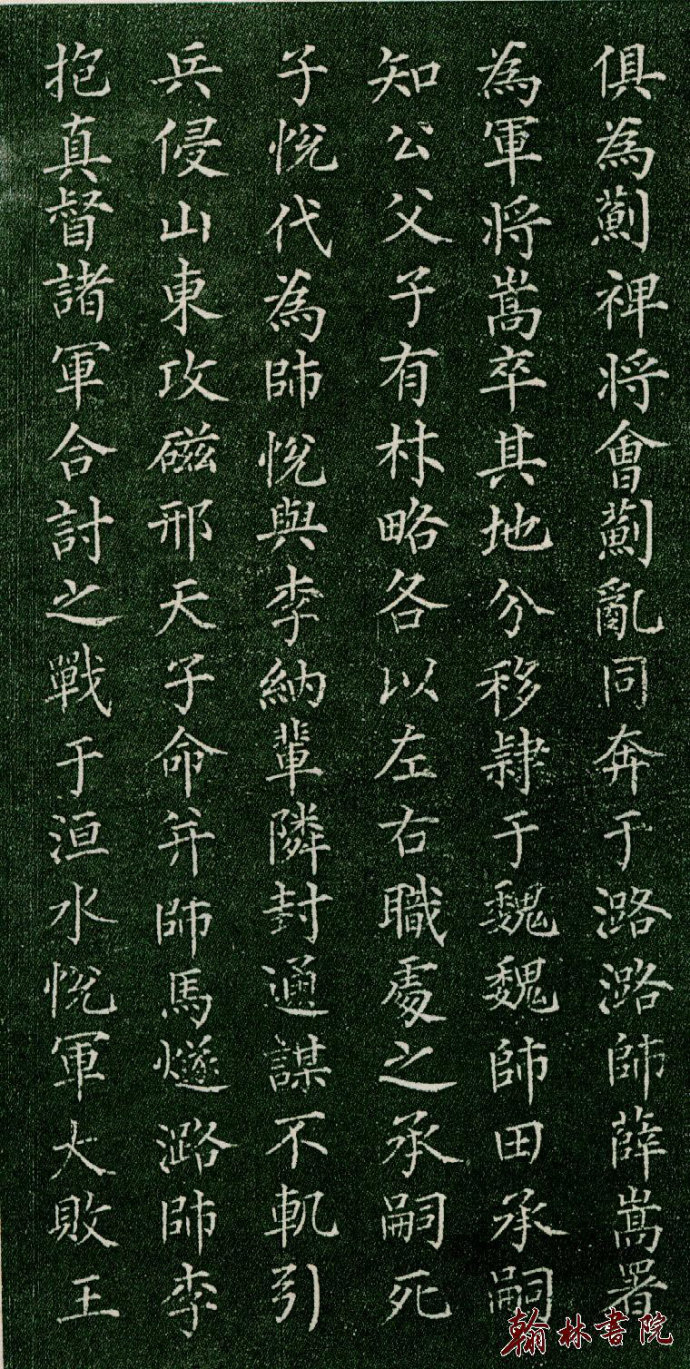 俱為薊裨將會薊亂同奔于潞潞帥薛嵩署
為軍將嵩卒其地分移隷于魏魏帥田承嗣
知公父子有材略各以左右職處之承嗣死
子悅代為帥悅與李納軰隣封通謀不軌引
兵侵山東攻磁邢天子命并帥馬燧潞帥李
抱真督諸軍合討之戰于洹水悅軍大敗王
翰林書院